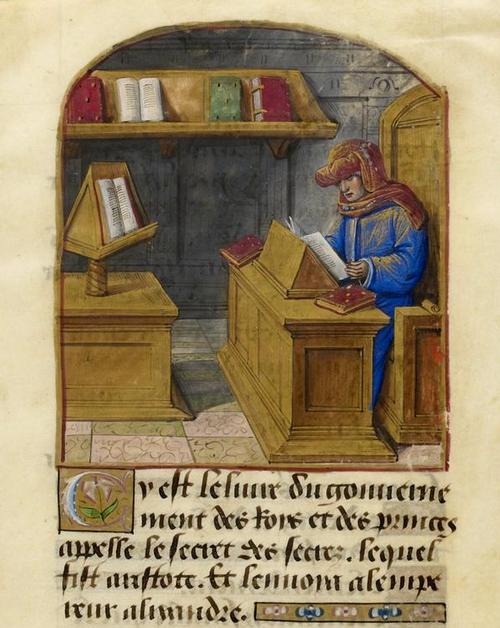 Cy est le liure du gouuerne
ment des Roys et des princes
appelle le secret des secrez. lequel
fist aristote. Et lenuoia alempe
reur alixandre.